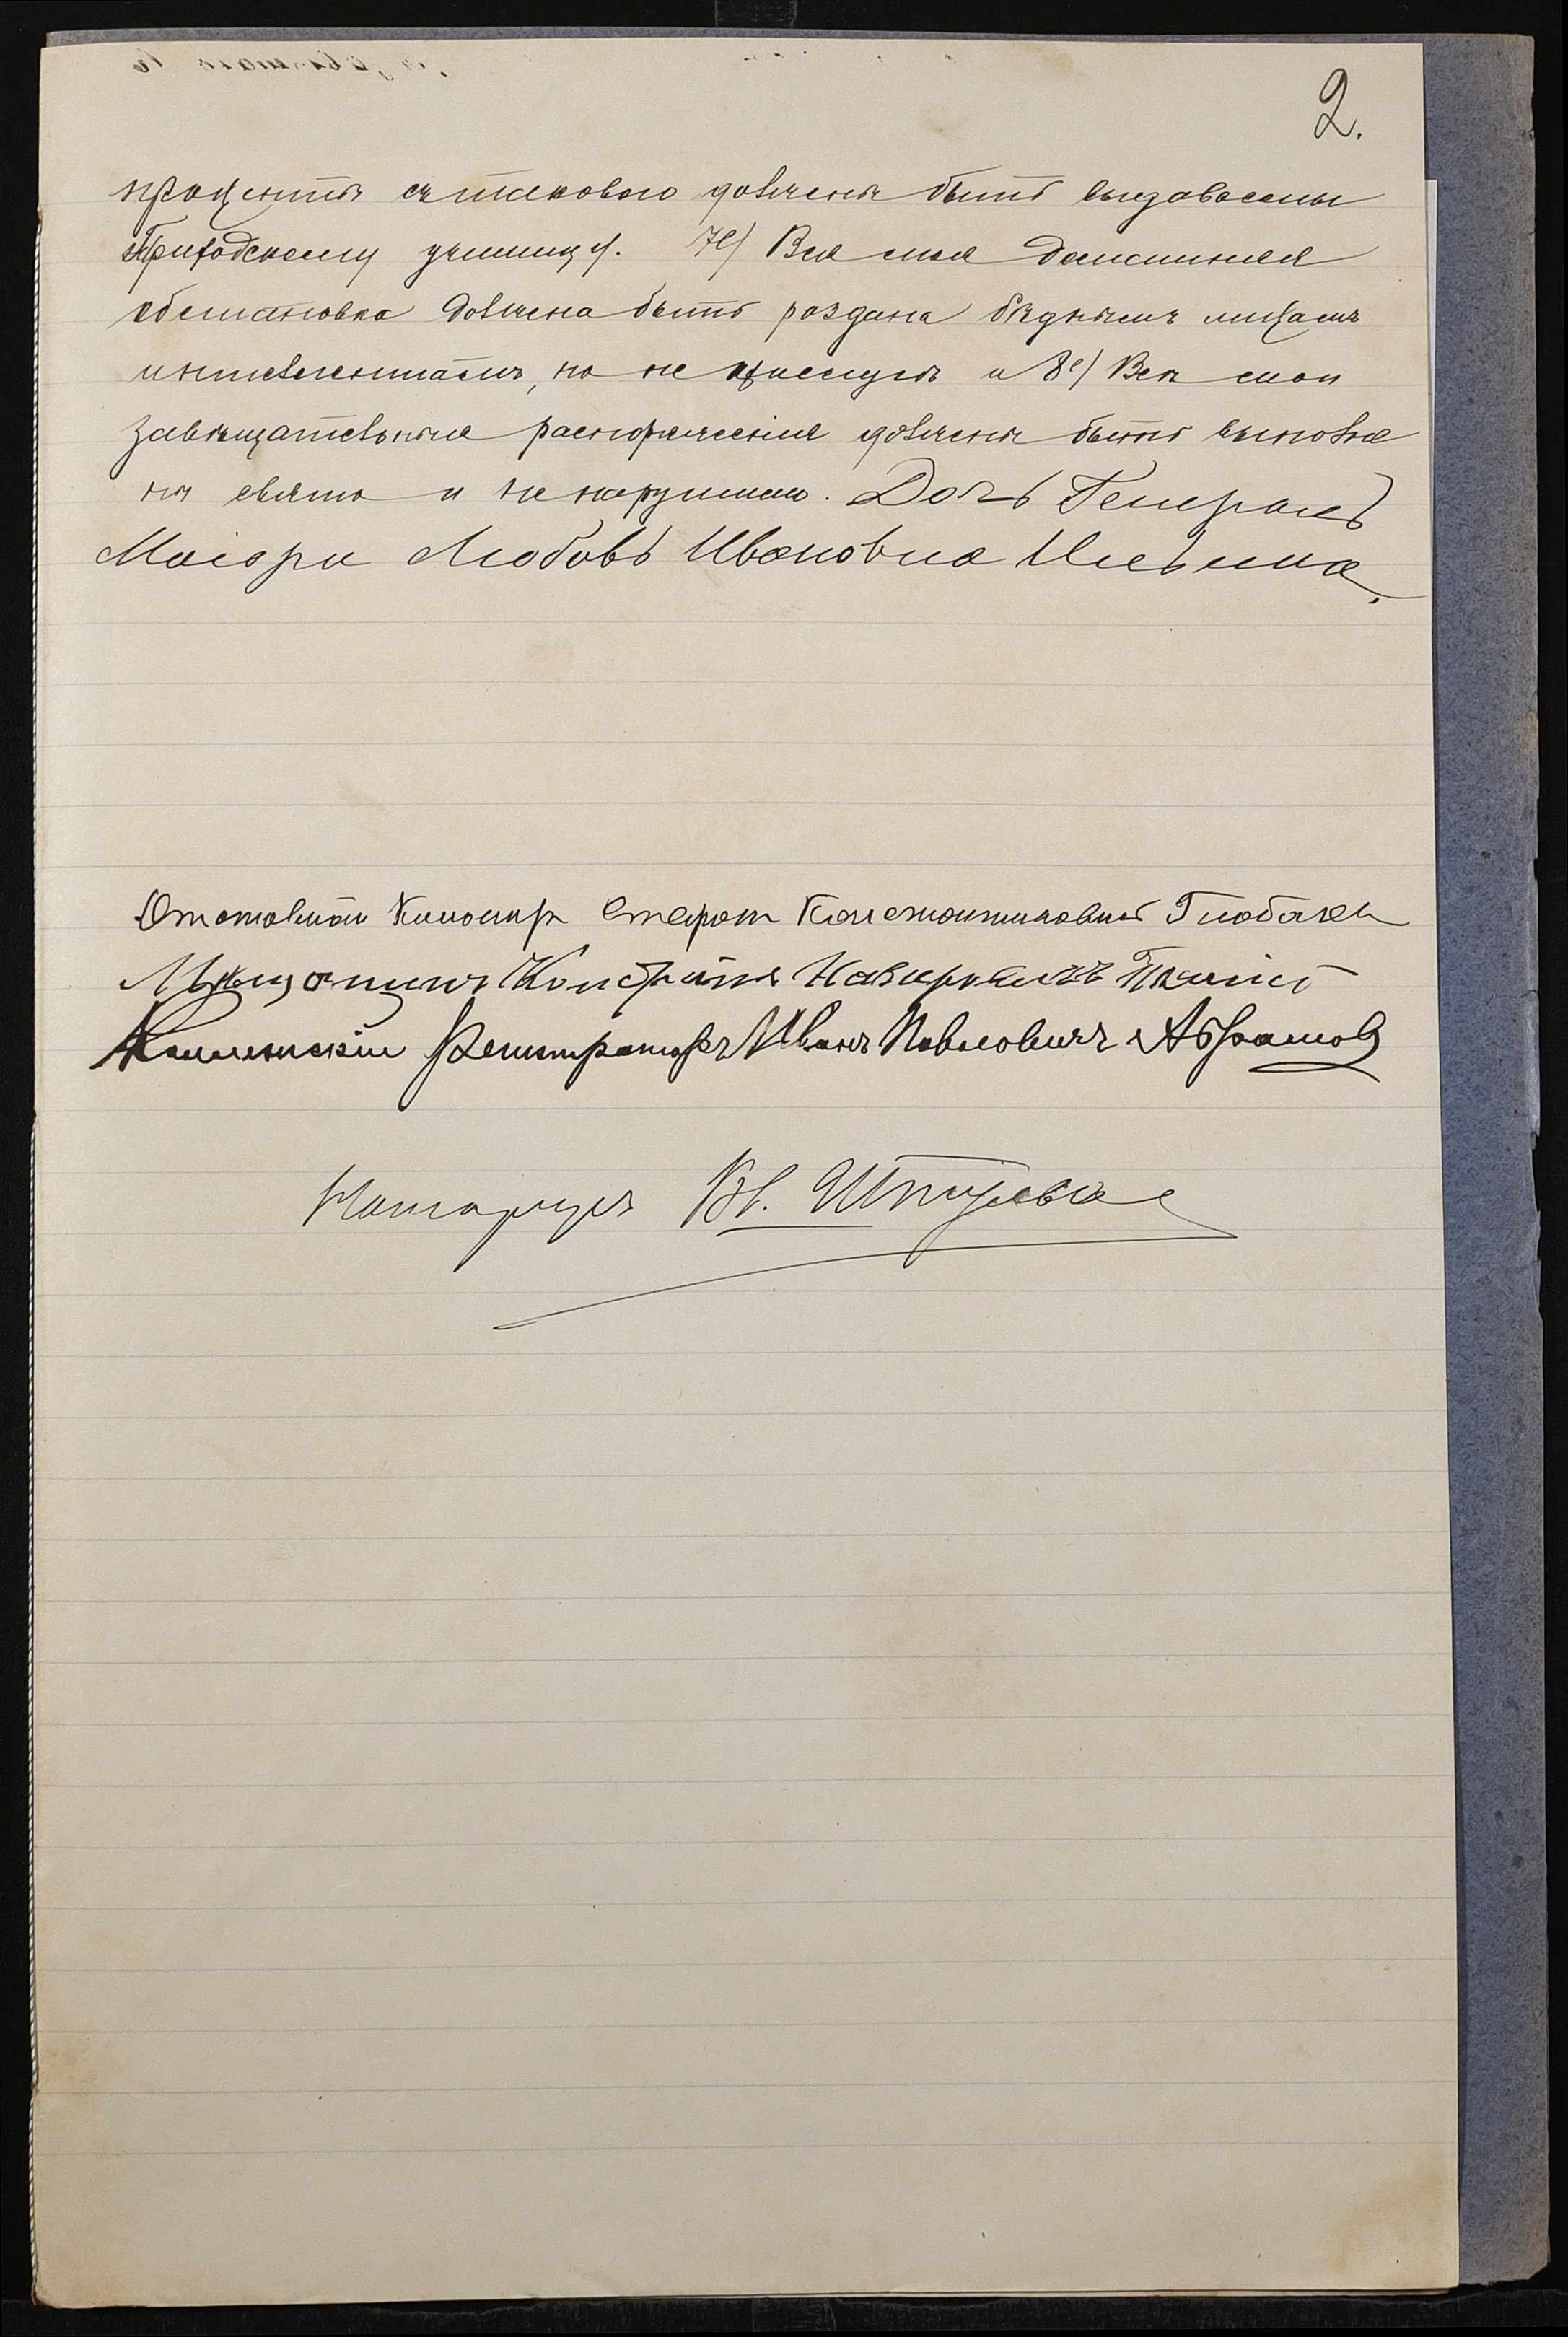 2.
проценты съ таковаго должны быть выдаваемы
Приходскому училищу. 7е) Вся моя домашняя
обстановка должна быть роздана бѣднымъ лицамъ
интелегентамъ, но не и 8е) Всѣ мои
завѣщательныя распоряженія должны быть выполне
ны свято и не нарушимо. Дочь Генералъ
Маіора Любовь Ивановна Ильина.
Отставной Константиновичъ
Мѣщанинъ
Коллежскій Регистраторъ Иванъ Павловичъ Абрамовъ
Нотаріусъ Вл.